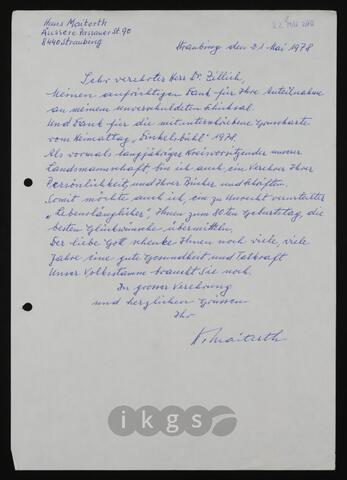 Hans Maiterth
Äussere Passauer St. 90
8440 Straubing
22. Mai 1978
Straubing den 21. Mai 1978
Sehr verehrter Herr Dr. Zillich,
Meinen aufrichtigen Dank für Ihre Anteilnahme
an meinem unverschuldeten Schicksal.
Und Dank für die mitunterschriebene Grusskarte
vom Heimattag "Dinkelsbühl" 1978.
Als vormals langjähriger Kreisvorsitzender unserer
Landsmannschaft, bin ich auch ein Verehrer Ihrer
Persönlichkeit und Ihrer Bücher und Schriften.
Somit möchte auch ich, ein zu Unrecht verurteilter
"Lebenslänglicher", Ihnen zum 80ten Geburtstag, die
besten Glückwünsche übermitteln.
Der liebe Gott schenke Ihnen noch viele, viele
Jahre eine gute Gesundheit und Tatkraft
Unser Volksstamm braucht Sie noch.
In grosser Verehrung
und herzlichen Grüssen
Ihr
H. Maiterth
ikgs